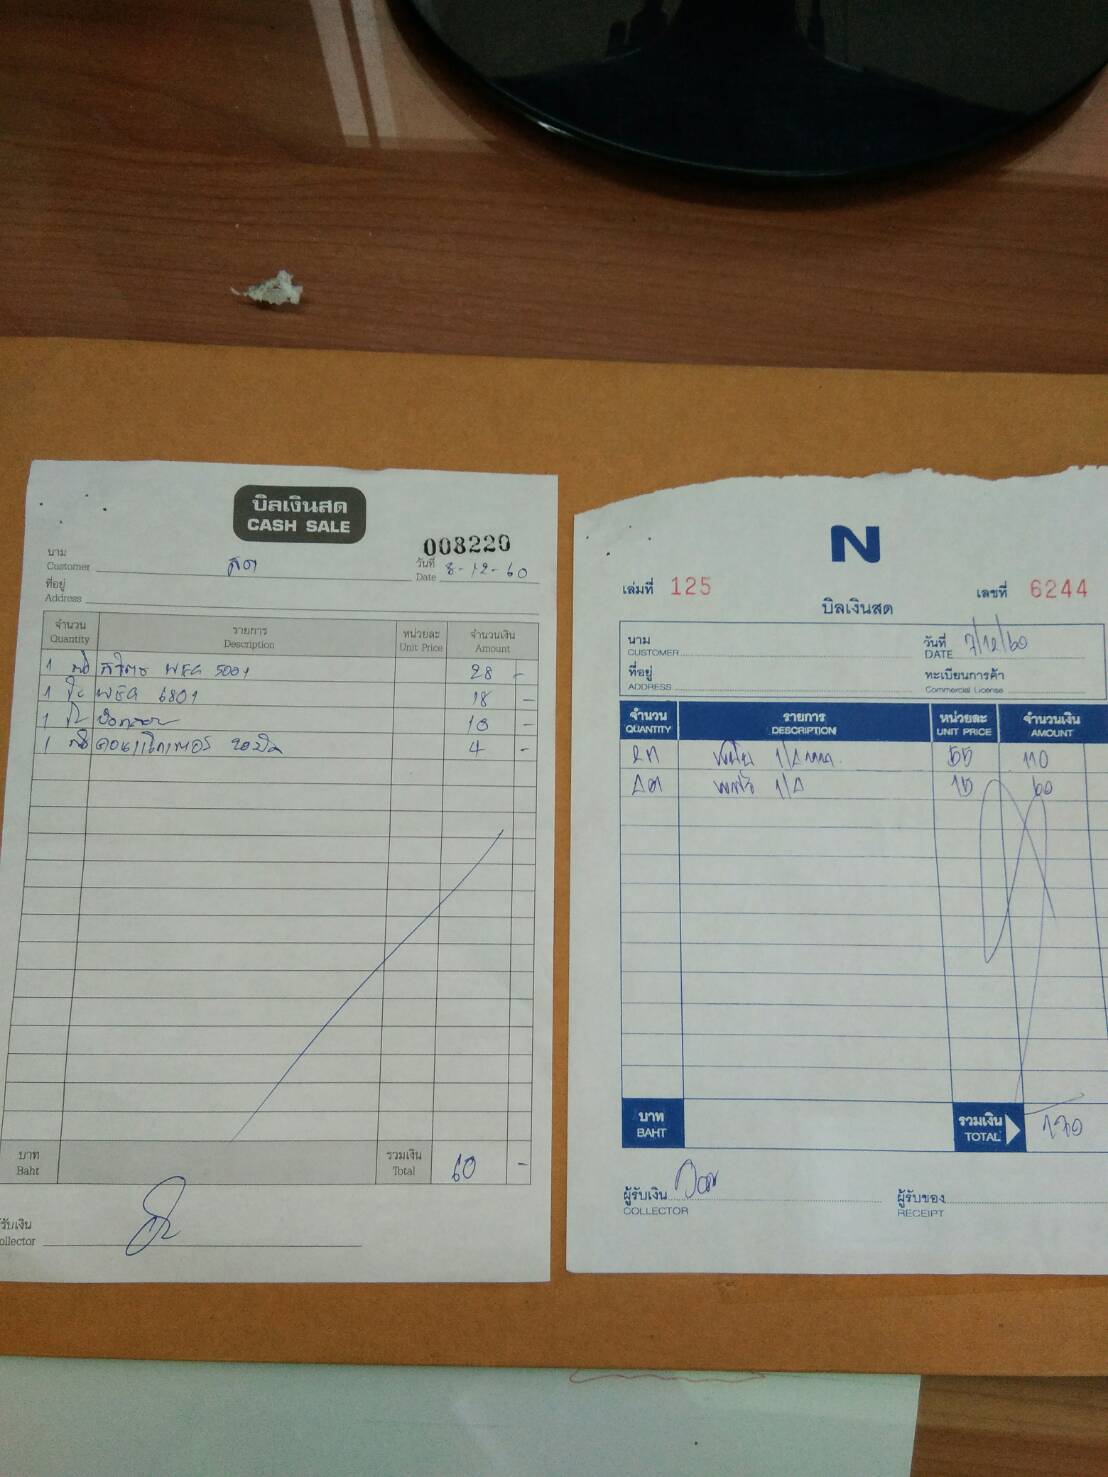 บิลเงินสด
CASH SALE
008220
นาม
Customer สด
วันที่
Date 8-12-60
ที่อยู่
Address
จำนวน
Quantity
รายการ
Description
หน่วยละ
Unit Price
จำนวนเงิน
Amount
1 WEG 5001 28 -
1 WEG 6801 18 -
1 10 -
1 4 -
บาท
Baht
รวมเงิน
Total
60 -
รับเงิน
ollector
N
เล่มที่ 125
เลขที่ 6244
บิลเงินสด
นาม
CUSTOMER
วันที่
DATE 7/12/60
ที่อยู่
ADDRESS
ทะเบียนการค้า
Commercial License
จำนวน
QUANTITY
รายการ
DESCRIPTION
หน่วยละ
UNIT PRICE
จำนวนเงิน
AMOUNT
55 110
15 60
บาท
BAHT
รวมเงิน
TOTAL
170
ผู้รับเงิน
COLLECTOR
ผู้รับของ
RECEIPT